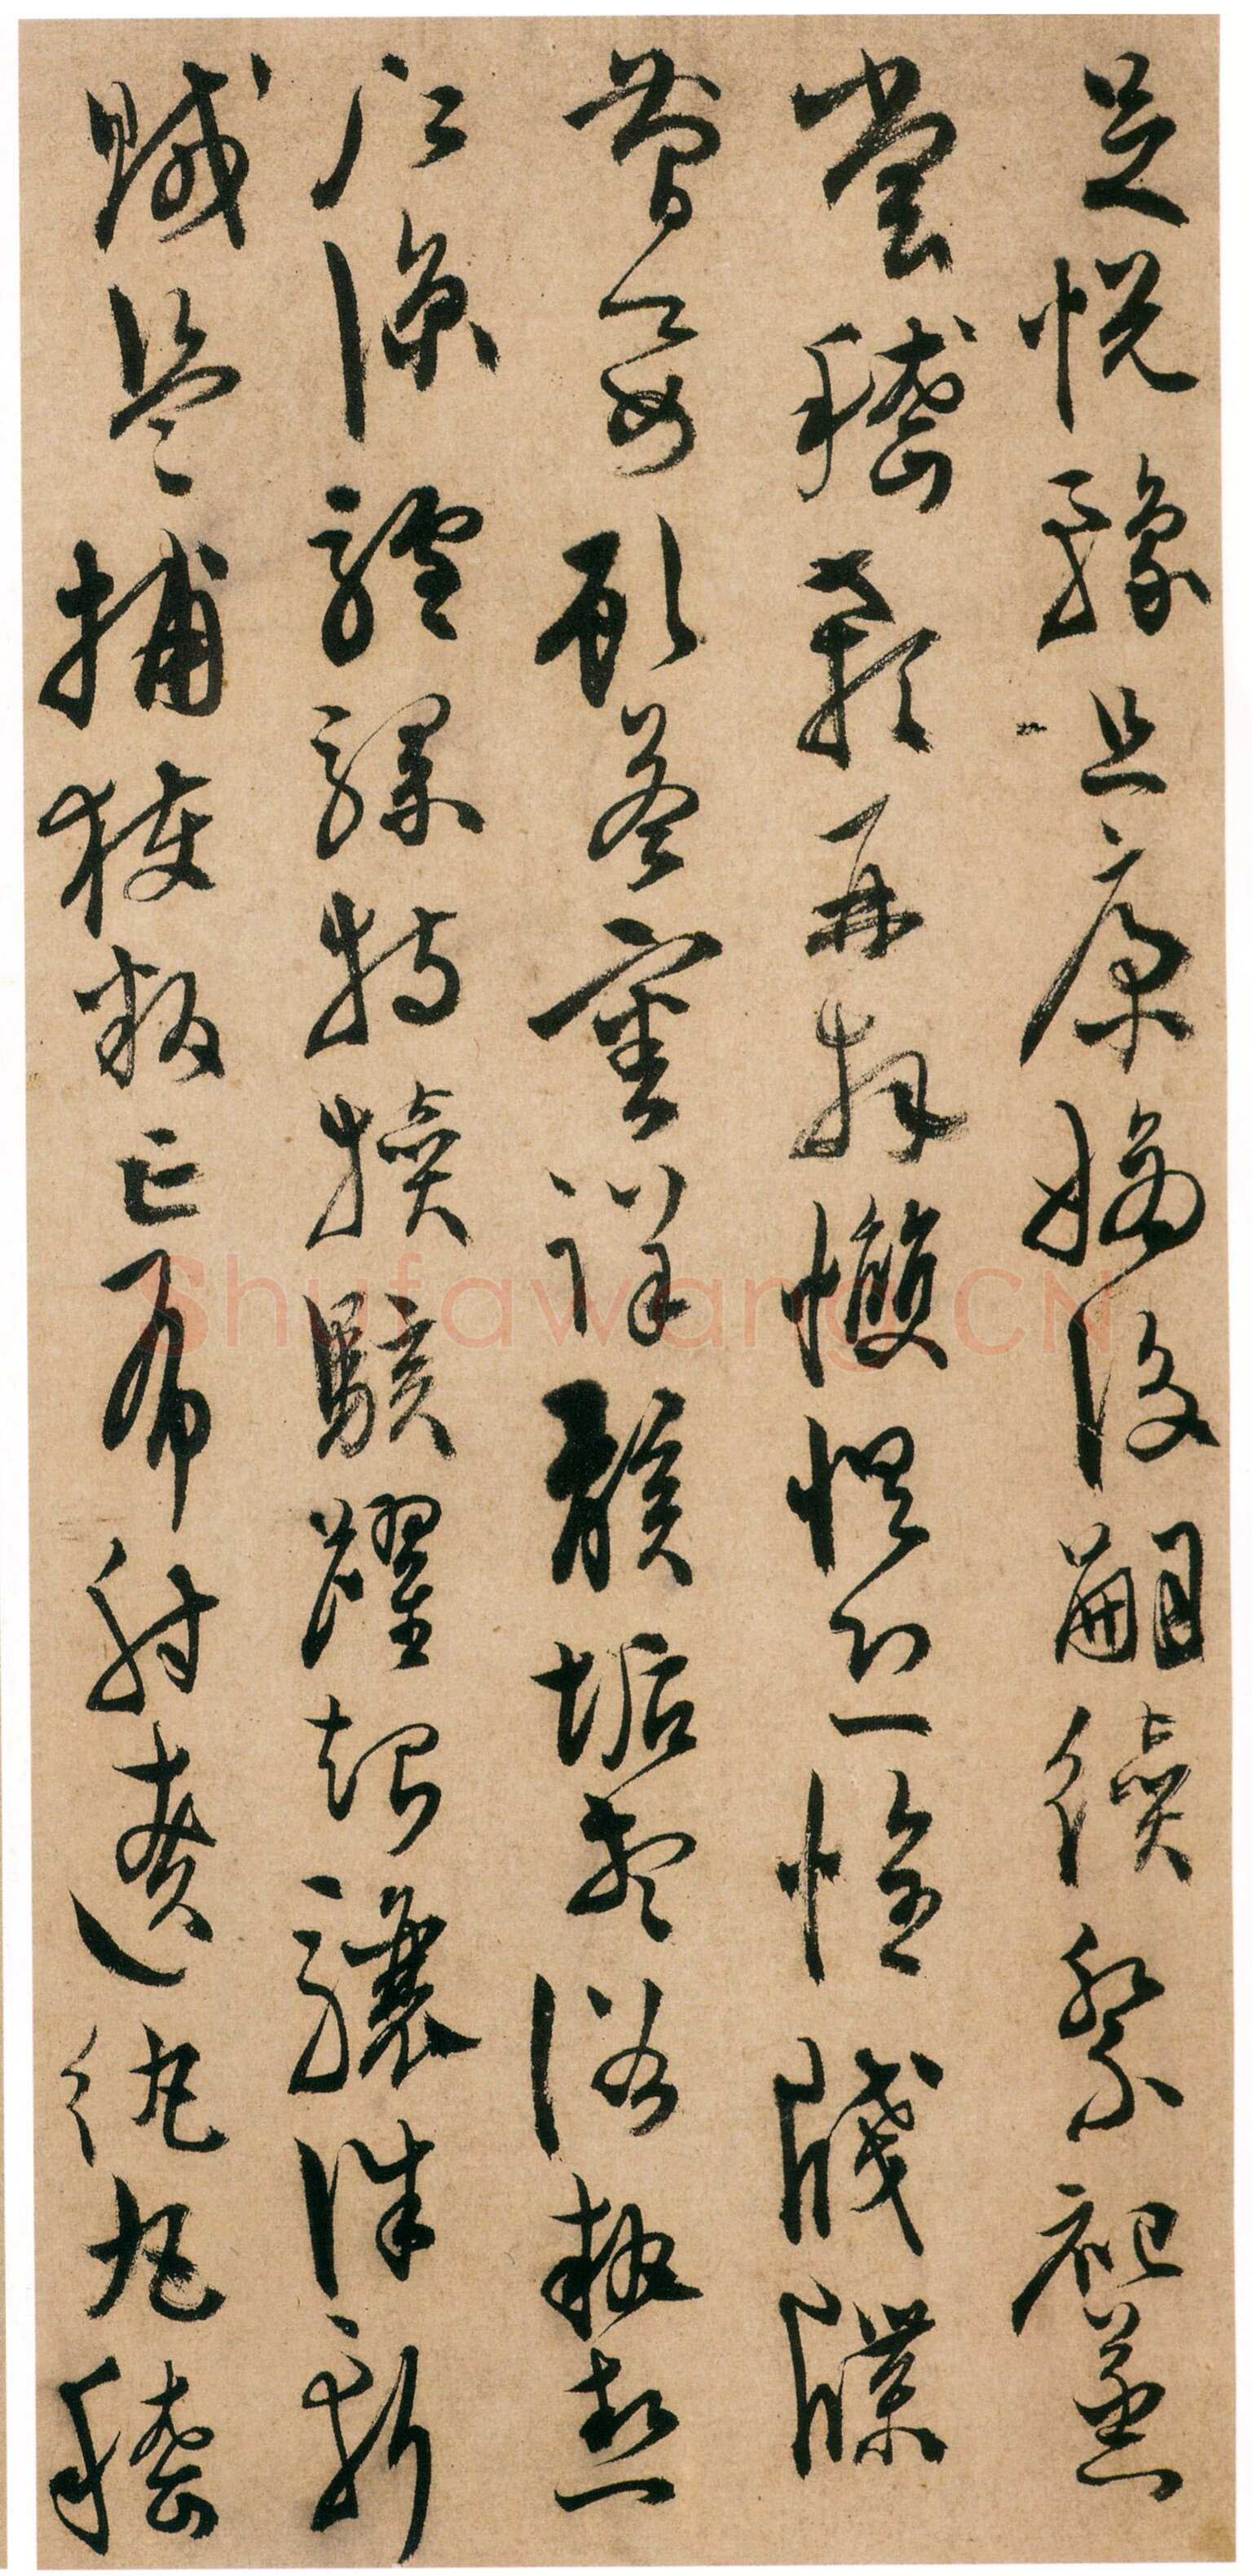 足悅豫且康嫡後嗣續祭祀蒸
嘗稽顙再拜愯懼恐惶牋牒
簡要顧答審詳骸垢想浴執熱
願涼驢騾特犢駭躍超驤誅斬
賊盜捕獲叛亡布射遼紈丸嵇
Shufawang.CN